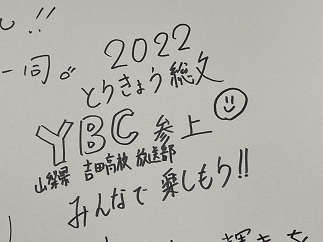 !!
一同。
2022
とりきょう総文
YBC 参上
山梨県 吉田高校 放送部
みんなで 楽しもう!!